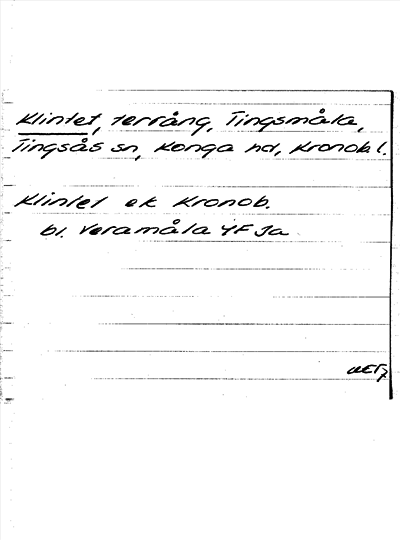 Klintet, terräng, Tingsmåla,
Tingsås sn, Konga hd, Kronob l.
Klintet ek Kronob.
bl. Veramåla 4F Ja